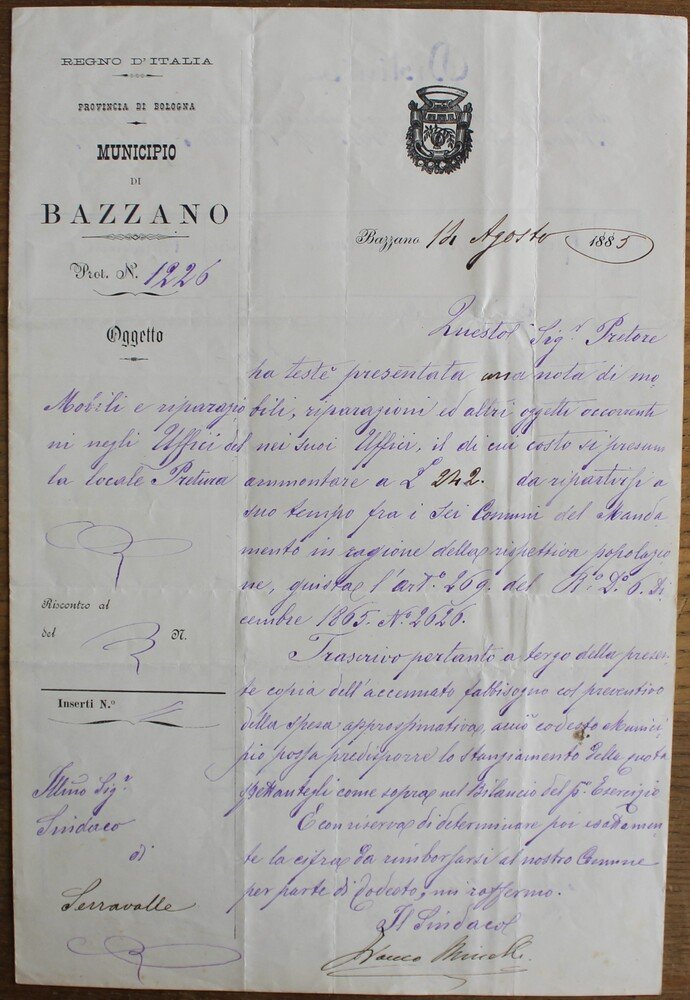 REGNO D'ITALIA
PROVINCIA DI BOLOGNA
MUNICIPIO
DI
BAZZANO
Prot. N. 1226
Oggetto
Mobili e riparazio
ni negli Uffici del
la locale Pretura
Riscontro al
del N.
Inserti N.º
Illmo Sigr.
Sindaco
di
Serravalle
Bazzano 14 Agosto 1885
Questo Sigr. Pretore
ha testè presentata una nota di mo
bili, riparazioni ed altri oggetti occorrenti
nei suoi Uffici, il di cui costo si presum
ammontare a L. 242. da ripartirsi a
suo tempo fra i sei Comuni del Manda
mento in ragione della rispettiva popolazio
ne, giusta l'art.º 269. del R.º D.º 6. Di
cembre 1865. Nº 2626.
Trascrivo pertanto a tergo della presen
te copia dell'accennato fabbisogno col preventivo
della spesa approssimativa, acciò codesto Munici
pio possa predisporre lo stanziamento della quota
spettantegli come sopra nel Bilancio del pº Esercizio
E con riserva di determinare poi esattamen
te la cifra da rimborsarsi al nostro Comune
per parte di Codesto, mi raffermo.
Il Sindaco